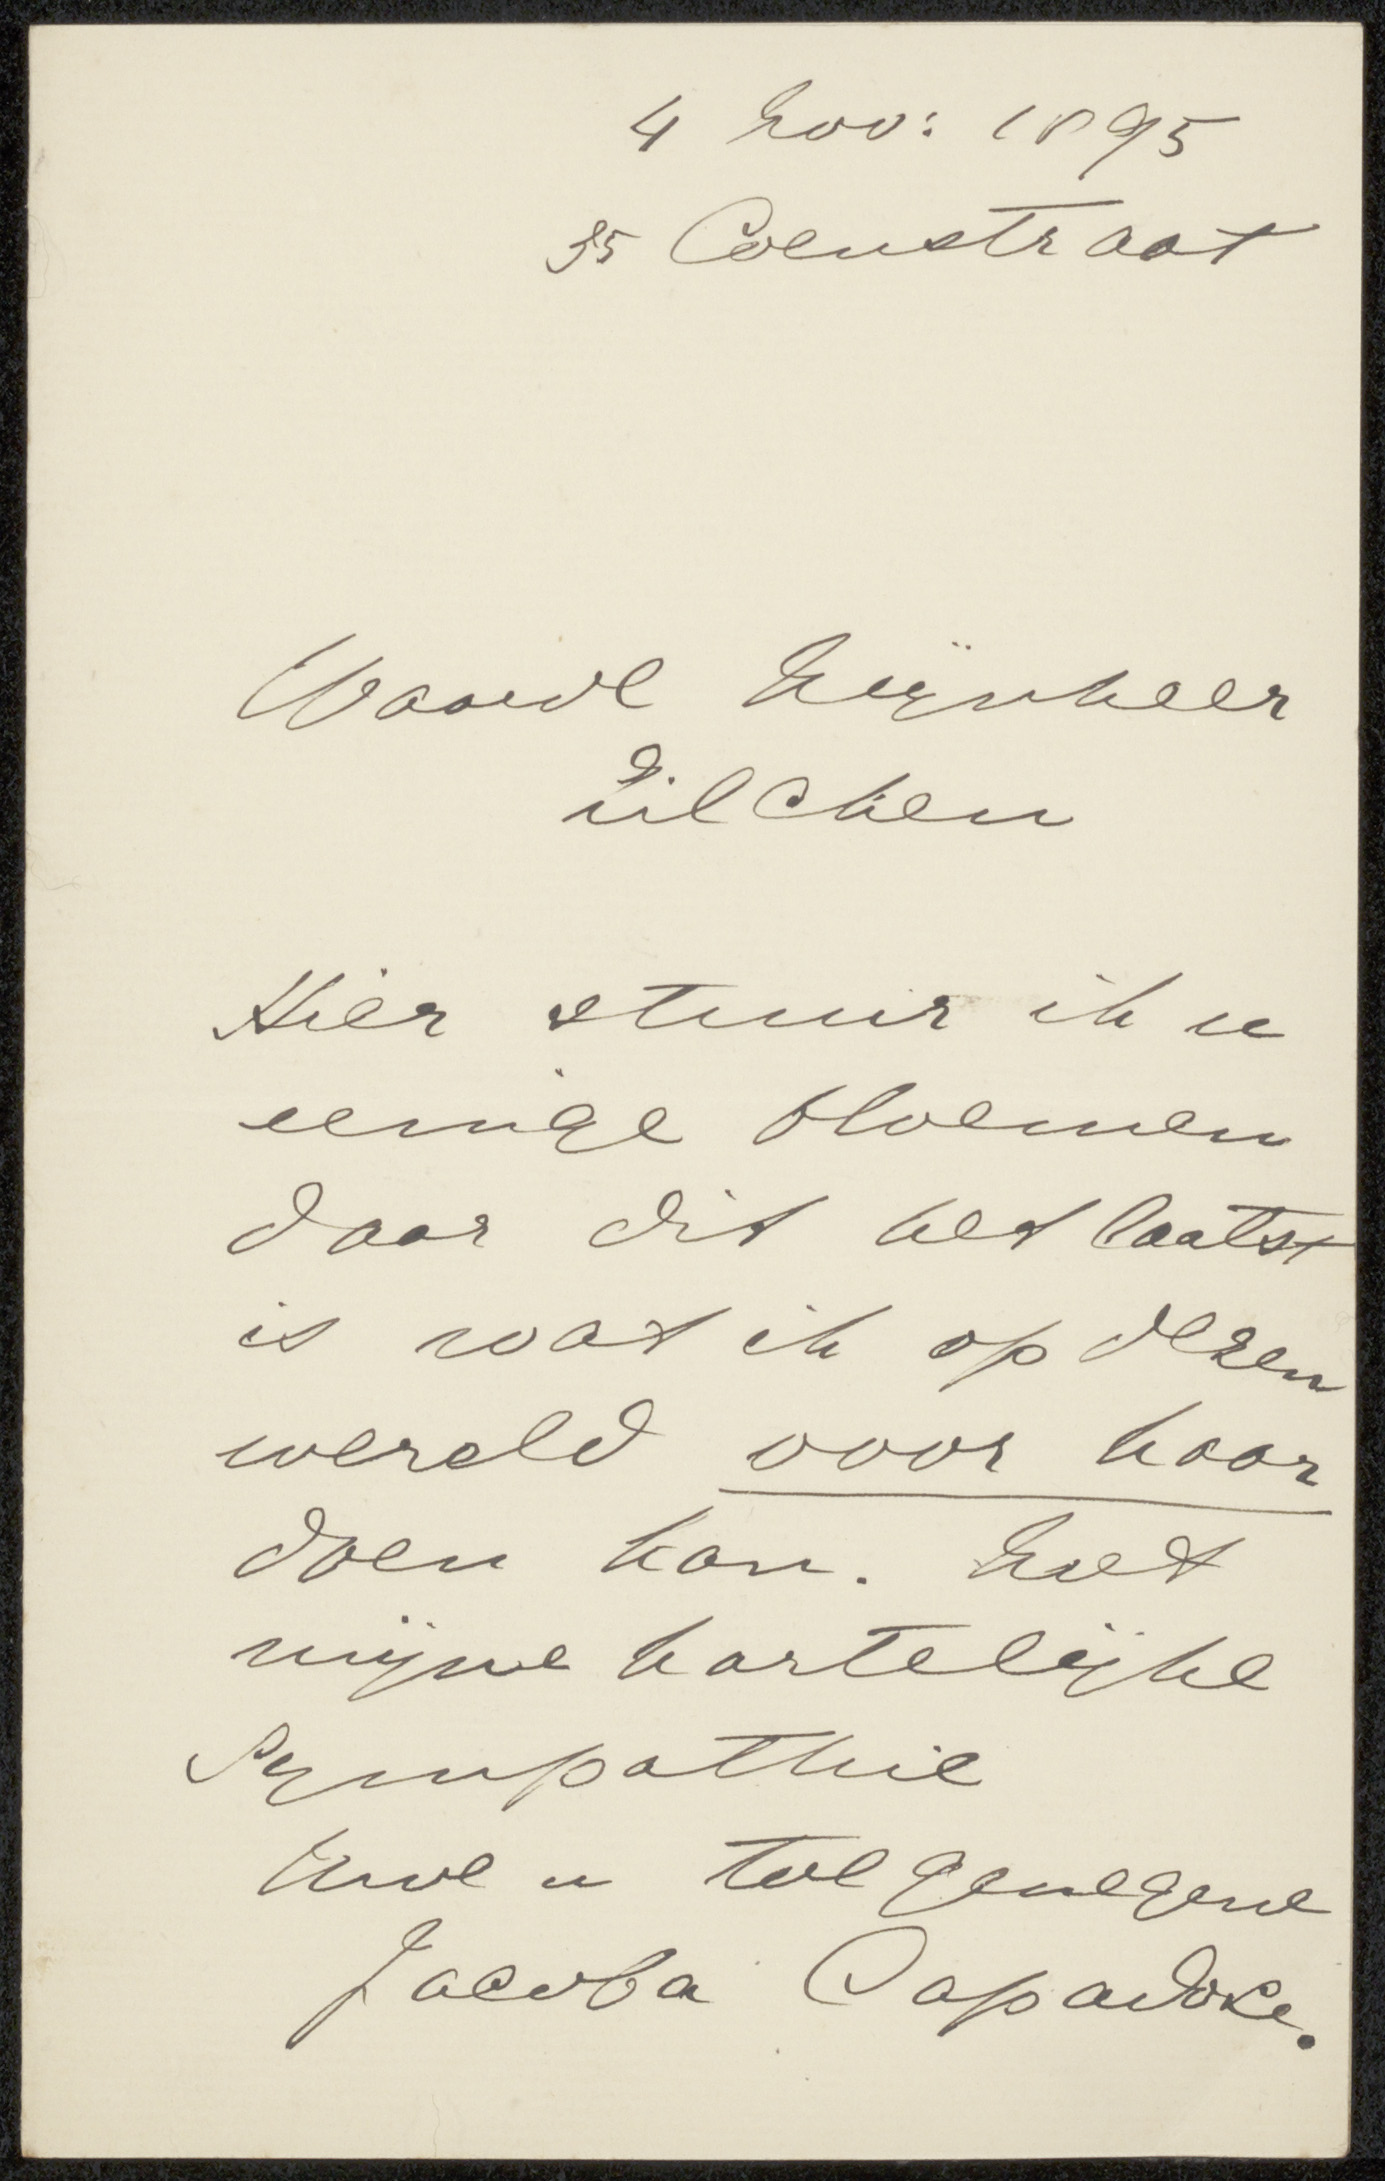 4 Nov: 1895
35 Coenstraat
Waarde Mijnheer
Zilcken
Hier stuur ik u
eenige bloemen
daar dit het laatst
is wat ik op dezen
wereld voor haar
doen kan. Met
mijne hartelijke
Sympathie
Uwe u toegenegene
Jacoba Capadose.